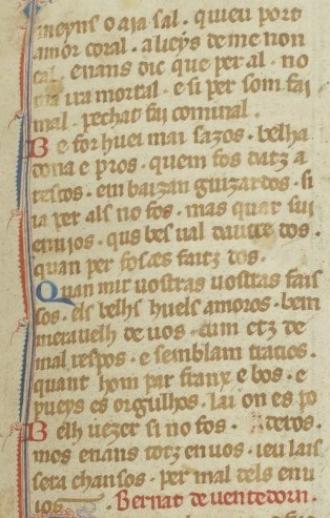 meyns o aia sal. quieu port
amor coral. alieys de me non
cal. enans dic que per al. no
na ira mortal. e si per som fai
mal. pechat fai comunal.
Be for huei mai sazos. belha
dona e pros. quem fos datz a
rescos. em baizan guizardos. si
ia per als no fos. mas quar sui
enuios. qus bes ual dautre dos.
quan per forsaes faitz dos.
Quan mir uostras uostras fais
sos. els belhs huels amoros. bem
merauelh de uos. cum etz de
mal respos. e semblam tracios.
quant hom par francx e bos. e
pueys es orgulhos. lai on es po
Belh uezer si no fos. deros.
mos enans totz en uos. ieu lais
sera chansos. per mal dels enu
ios. Bernat de uentedorn.